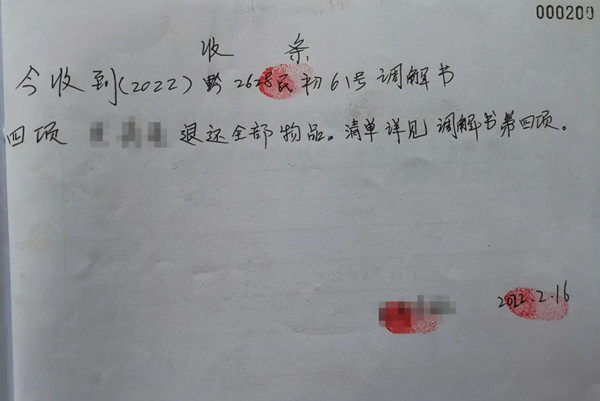 000200
收 条
今收到(2022)黔2628民初61号调解书
四项 退还全部物品。清单详见调解书第四项。
2022.2.16